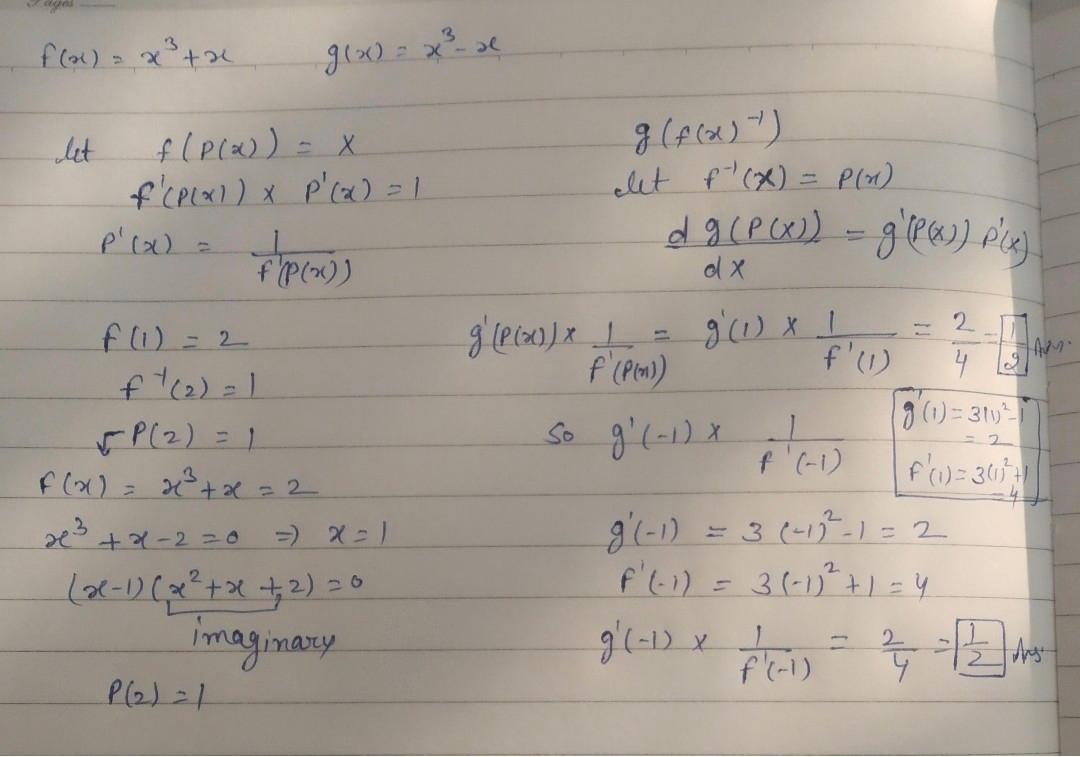 Pages
f(x) = x³ + x      g(x) = x³ - x
let f(P(x)) = x
f'(P(x)) x P'(x) = 1
P'(x) = 1 / f'(P(x))
f(1) = 2
f⁻¹(2) = 1
P(2) = 1
f(x) = x³ + x = 2
x³ + x - 2 = 0 => x = 1
(x-1)(x² + x + 2) = 0
imaginary
P(2) = 1
g(f(x)⁻¹)
let f⁻¹(x) = P(x)
d g(P(x)) / dx = g'(P(x)) P'(x)
g'(P(x)) x 1 / f'(P(x)) = g'(1) x 1 / f'(1) = 2/4 = 1/2 Ans.
g'(1) = 3(1)² - 1
= 2
f'(1) = 3(1)² + 1
= 4
so g'(-1) x 1 / f'(-1)
g'(-1) = 3(-1)² - 1 = 2
f'(-1) = 3(-1)² + 1 = 4
g'(-1) x 1 / f'(-1) = 2/4 = 1/2 Ans